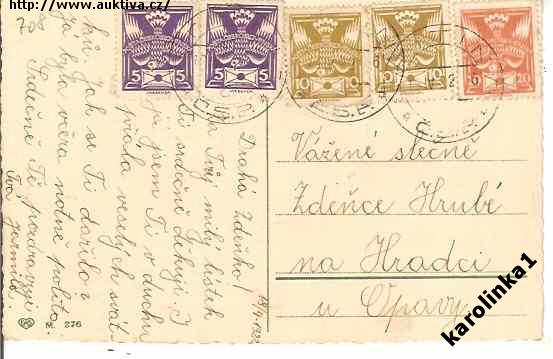 http://www.auktiva.cz/
708
5
5
10
10
10
10
20
Č.S.R.
Drahá Zdeňko!
Za Tvůj milý lístek
Ti srdečně děkuji. I
já jsem Ti v duchu
přála veselých svát
ků. Jak se Ti dařilo?
Já byla věra notně polita.
Srdečně Tě pozdravuje
Tvá
Jarmila.
Vážené slečně
Zdeňce Hrubé
na Hradci
u Opavy
M. 276
karolinka1